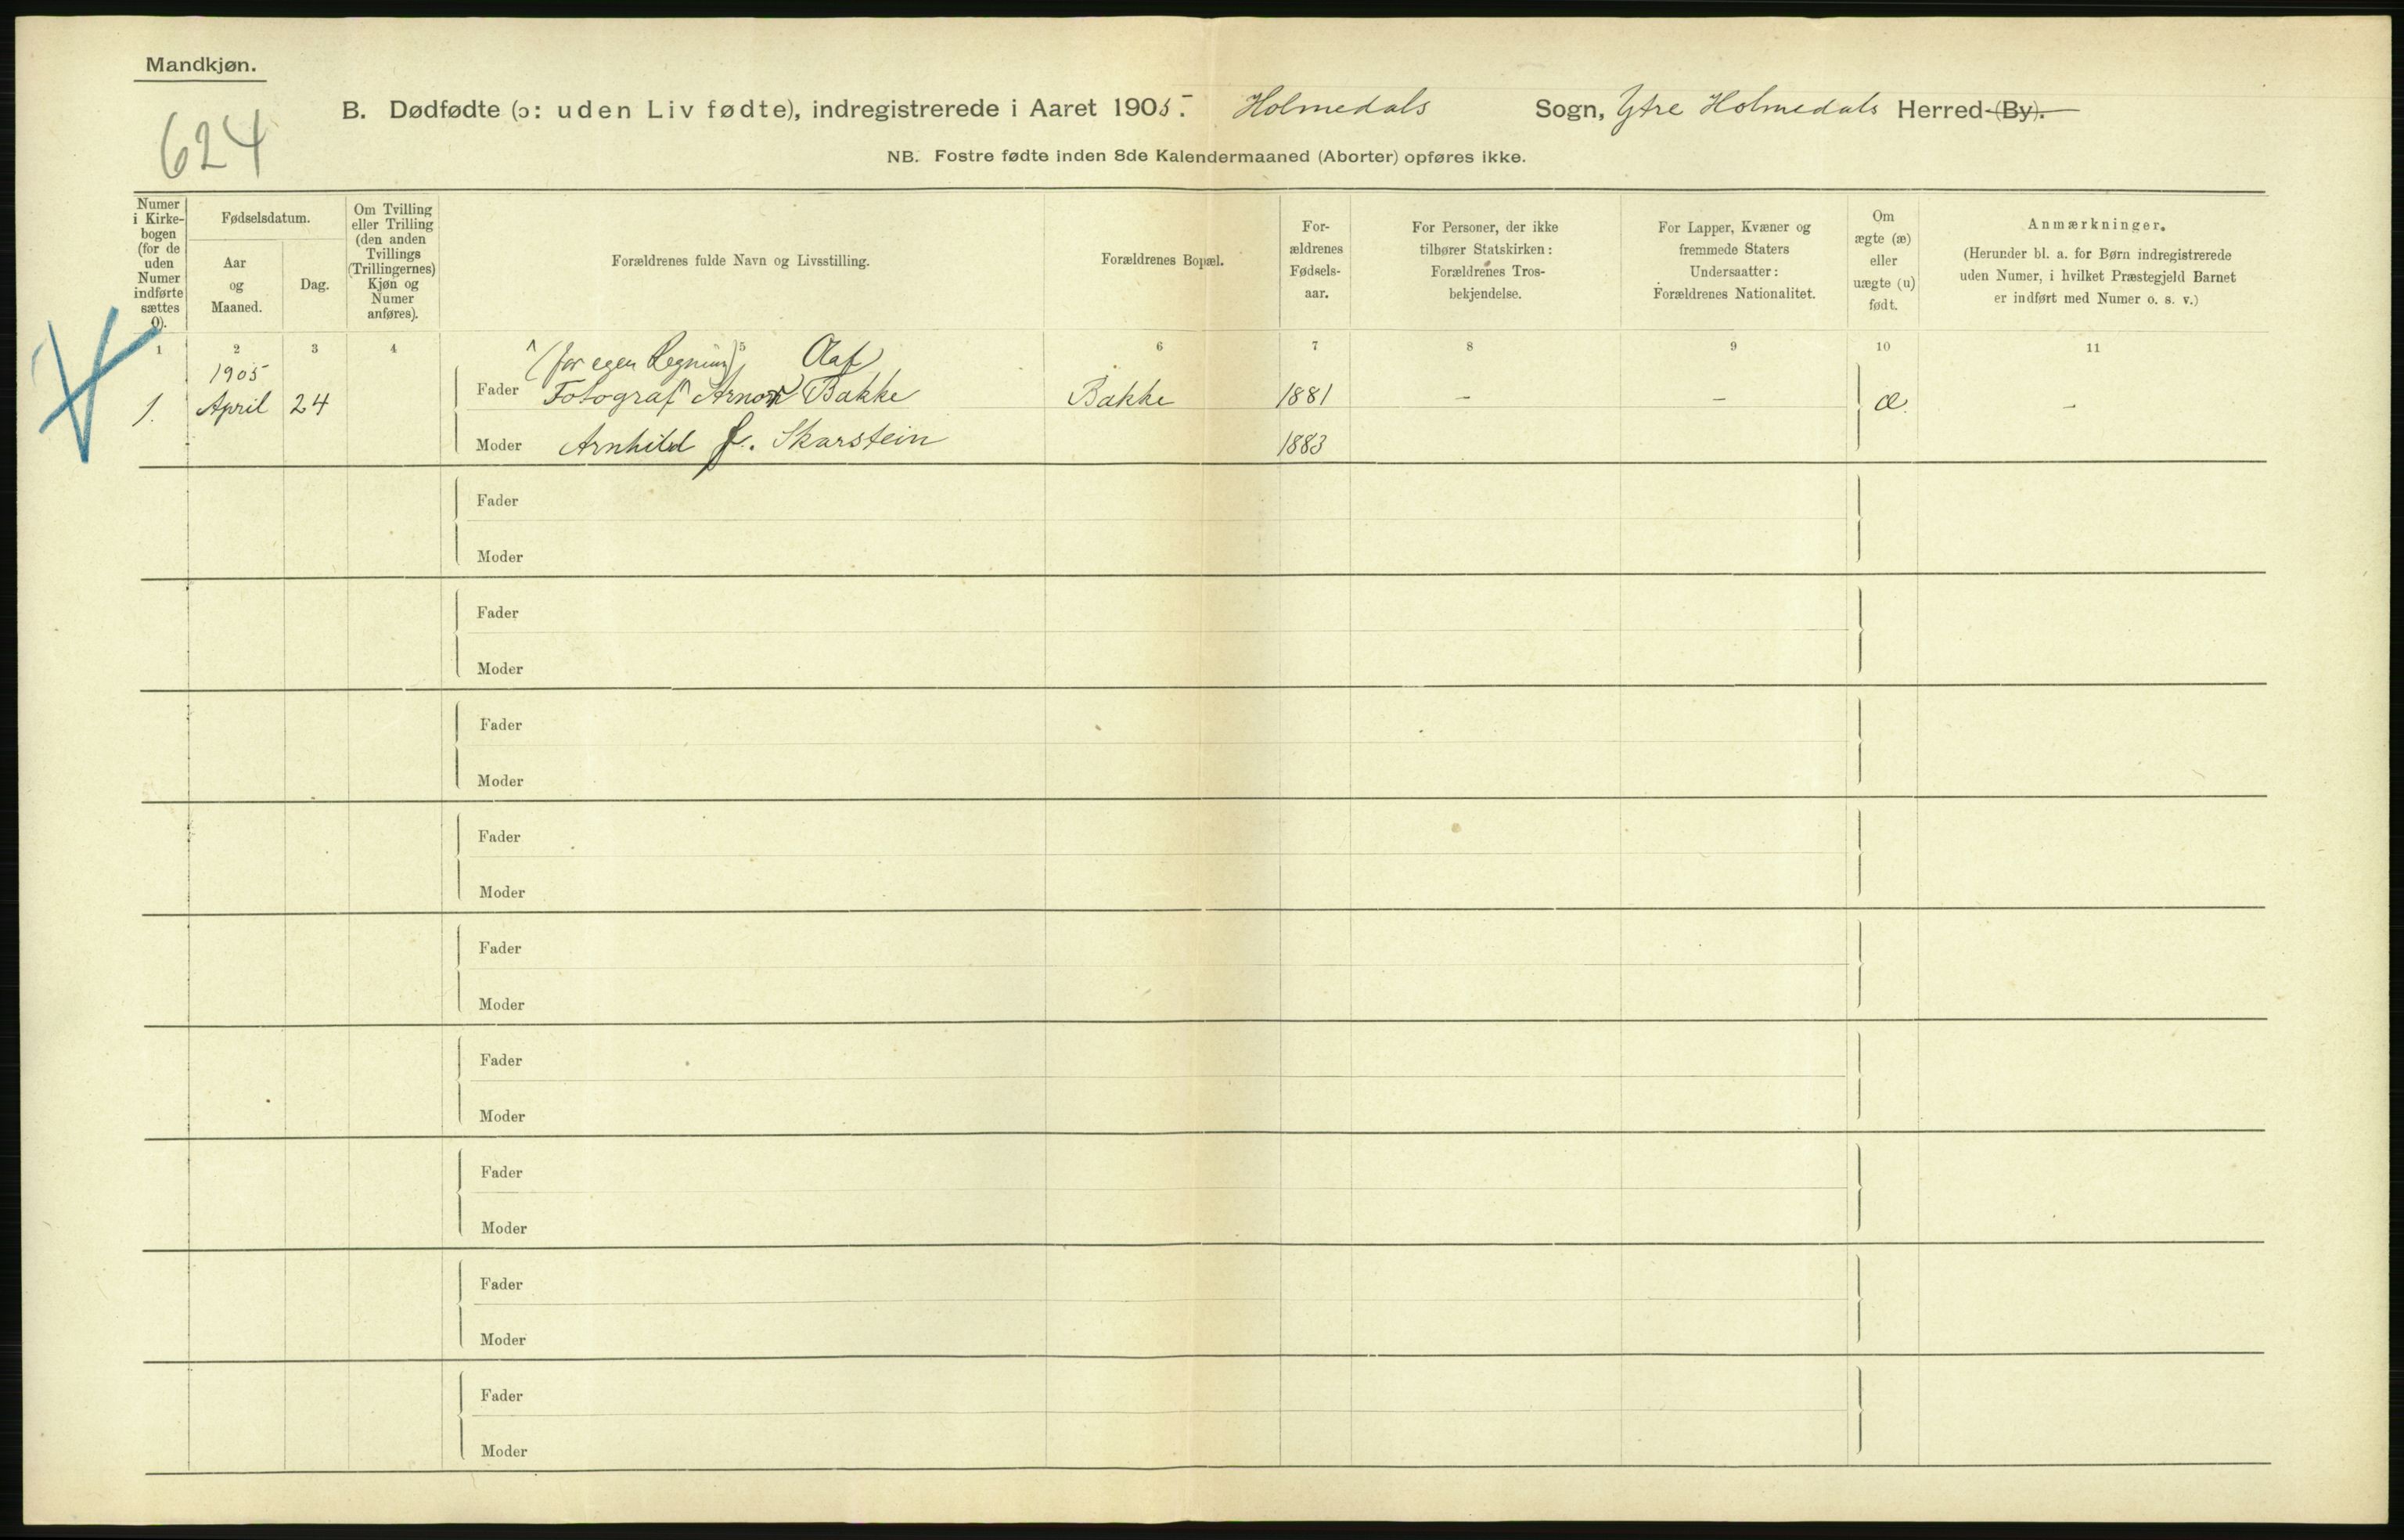 Mandkjøn.
624
B. Dødfødte (ɔ: uden Liv fødte), indregistrerede i Aaret 1905. Holmedals Sogn, Ytre Holmedals Herred (By).
NB. Fostre fødte inden 8de Kalendermaaned (Aborter) opføres ikke.
Numer i Kirke-
bogen
(for de
uden
Numer
indførte
sættes
0).
Fødselsdatum.
Aar
og
Maaned.
Dag.
Om Tvilling
eller Trilling
(den anden
Tvillings
(Trillingernes)
Kjøn og
Numer
anføres).
Forældrenes fulde Navn og Livsstilling.
Forældrenes Bopæl.
For-
ældrenes
Fødsels-
aar.
For Personer, der ikke
tilhører Statskirken:
Forældrenes Tros-
bekjendelse.
For Lapper, Kvæner og
fremmede Staters
Undersaatter:
Forældrenes Nationalitet.
Om
ægte (æ)
eller
uægte (u)
født.
Anmærkninger.
(Herunder bl. a. for Børn indregistrerede
uden Numer, i hvilket Præstegjeld Barnet
er indført med Numer o. s. v.)
1 2 3 4 5 6 7 8 9 10 11
1905 (for egen Regning) Olaf
1. April 24 Fader Fotograf Arnor Bakke Bakke 1881 - - æ. -
Moder Arnhild f. Skarstein 1883
Fader
Moder
Fader
Moder
Fader
Moder
Fader
Moder
Fader
Moder
Fader
Moder
Fader
Moder
Fader
Moder
Fader
Moder